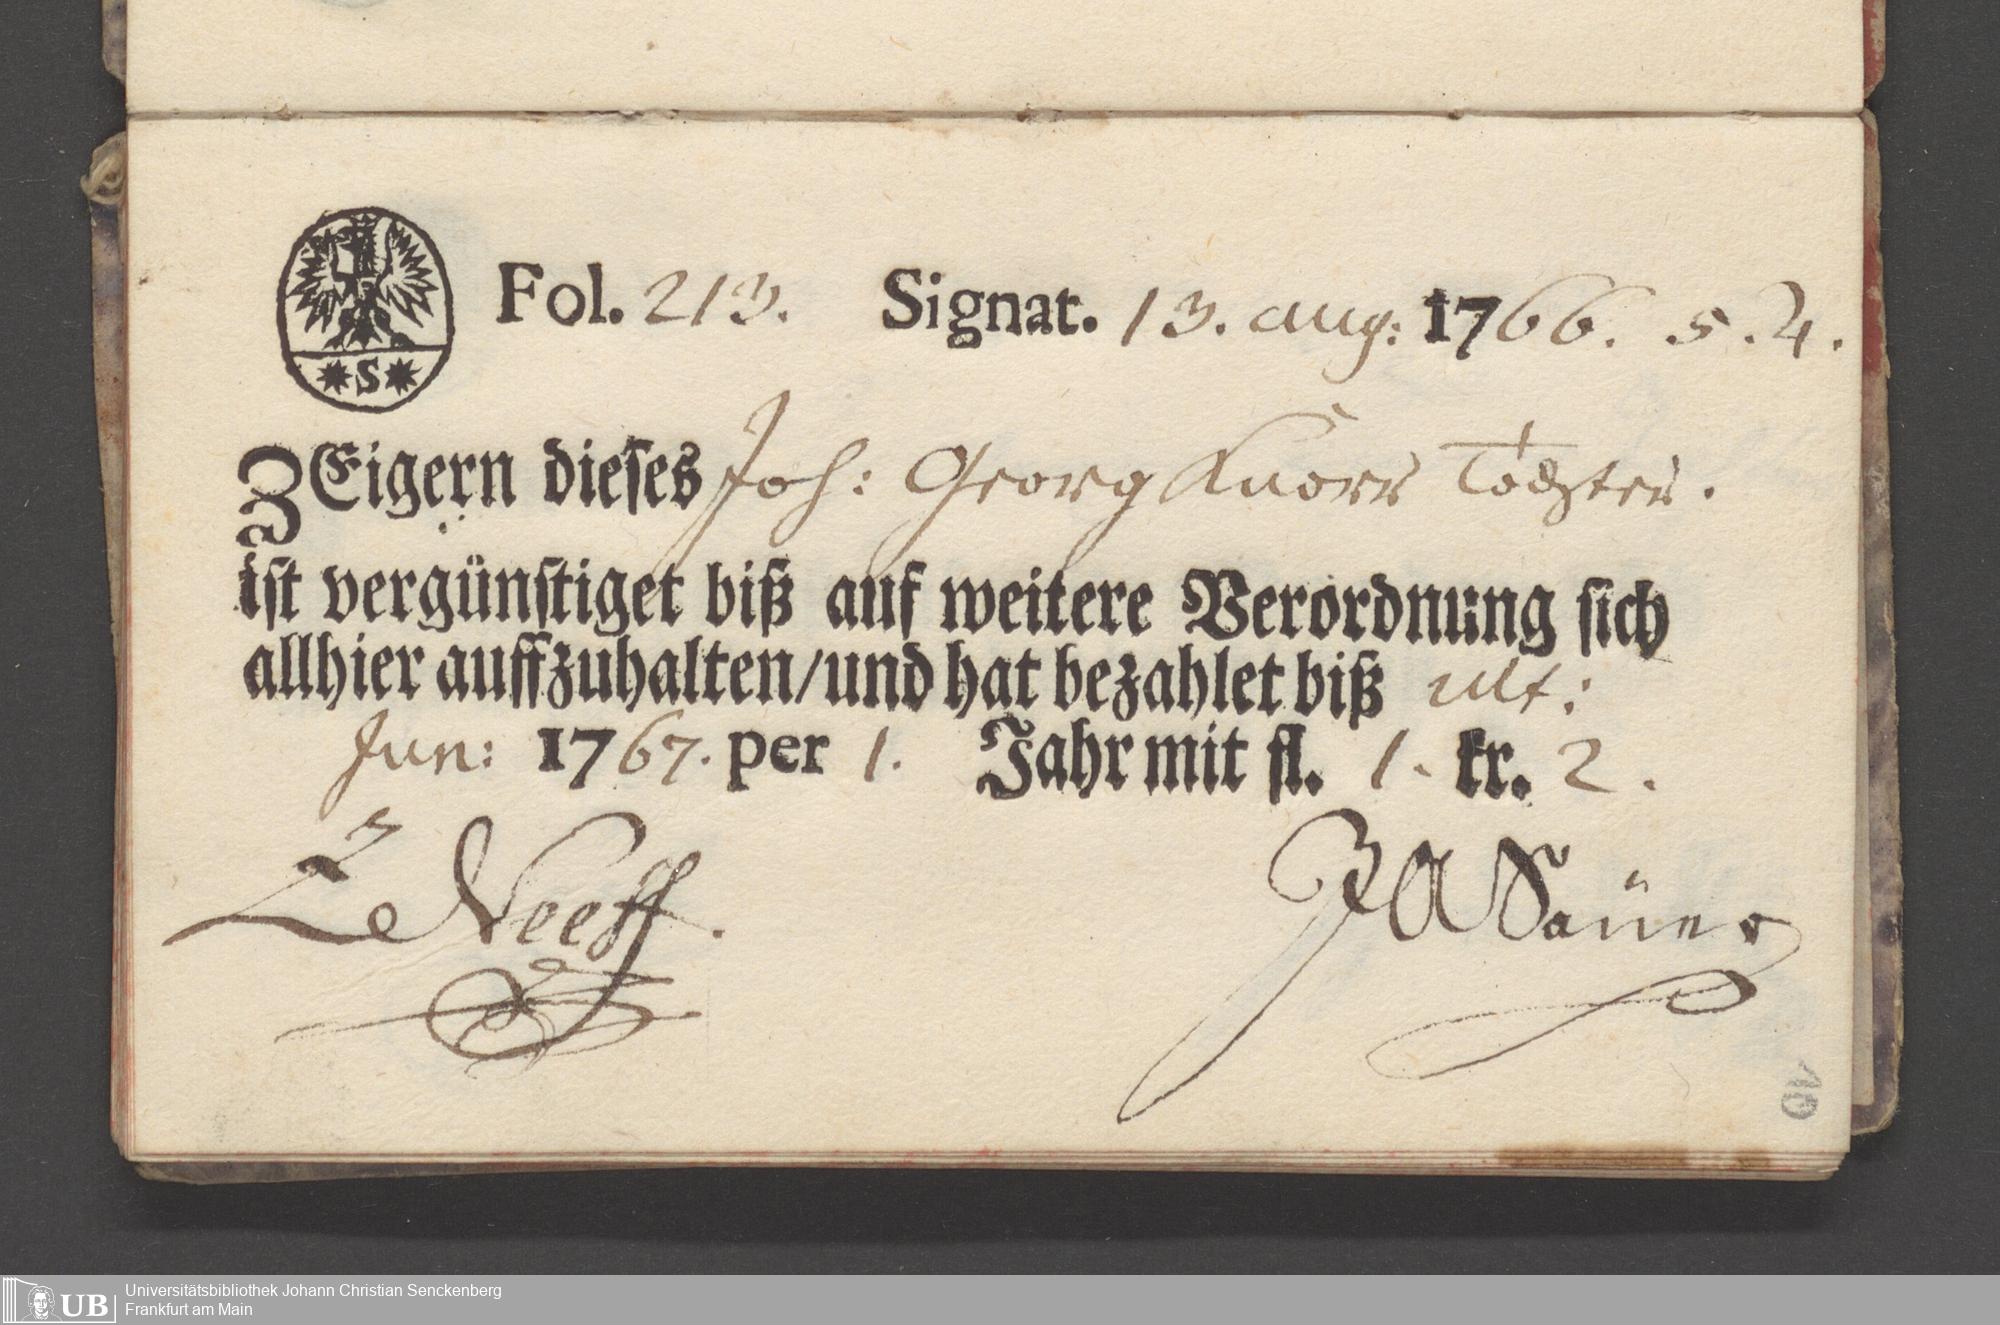 Fol. 213. Signat. 13. aug: 1766. 5.4.
*S*
ZEigern dieses Joh: Georg Knorr
ist vergünstiget biß auf weitere Verordnung sich
allhier auffzuhalten/und hat bezahlet biß ult:
Jun: 1767. per 1. Jahr mit fl. 1. kr. 2.
Neeff. JASaüer
40
UB Universitätsbibliothek Johann Christian Senckenberg
Frankfurt am Main